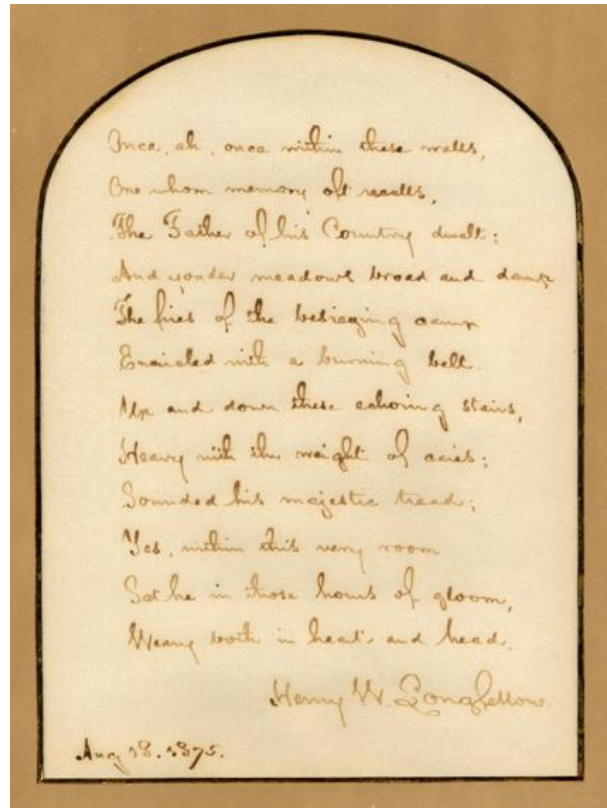 Once, ah, once within these walls,
One whom memory oft recalls,
The Father of his Country dwelt;
And yonder meadows broad and damp
The fires of the besieging camp
Encircled with a burning belt.
Up and down these echoing stairs,
Heavy with the weight of cares;
Sounded his majestic tread;
Yes, within this very room
Sat he in those hours of gloom,
Weary both in heart and head.
Henry W. Longfellow.
Aug 1875.